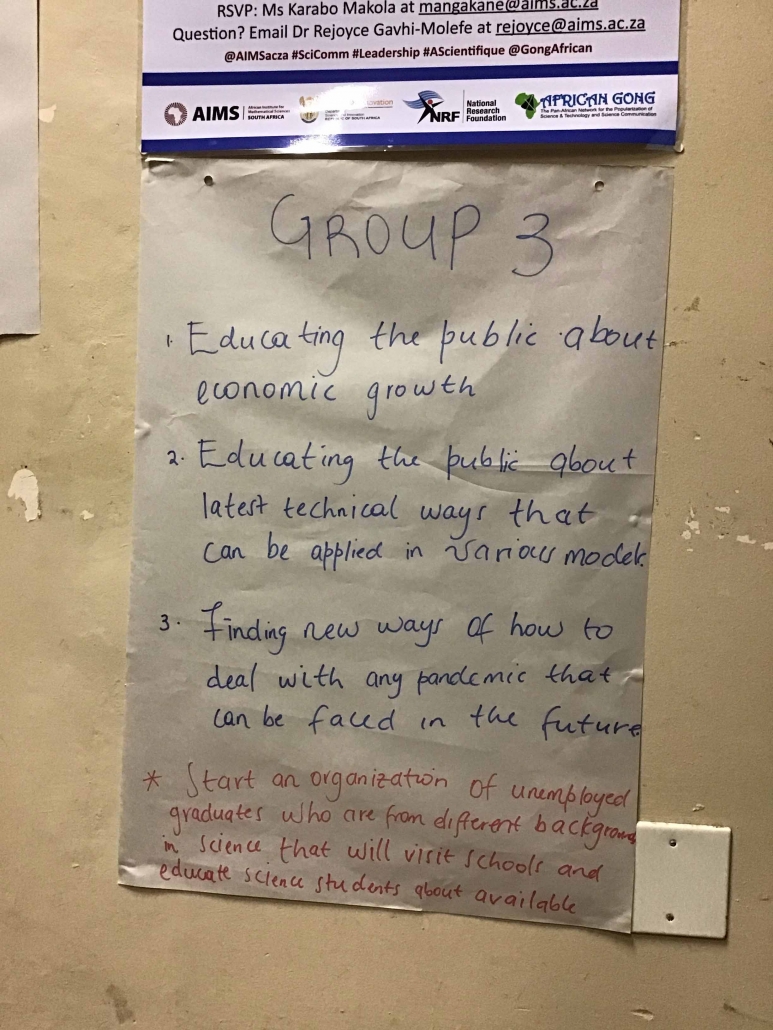 RSVP: Ms Karabo Makola at mangakane@aims.ac.za
Question? Email Dr Rejoyce Gavhi-Molefe at rejoyce@aims.ac.za
@AIMSacza #SciComm #Leadership #AScientifique @GongAfrican
AIMS African Institute for Mathematical Sciences SOUTH AFRICA
REPUBLIC OF SOUTH AFRICA
NRF National Research Foundation
AFRICAN GONG
The Pan-African Network for the Popularization of
Science & Technology and Science Communication
GROUP 3
1. Educating the public about
economic growth
2. Educating the public about
latest technical ways that
can be applied in various models
3. Finding new ways of how to
deal with any pandemic that
can be faced in the future
* Start an organization of unemployed
graduates who are from different background
in science that will visit schools and
educate science students about available